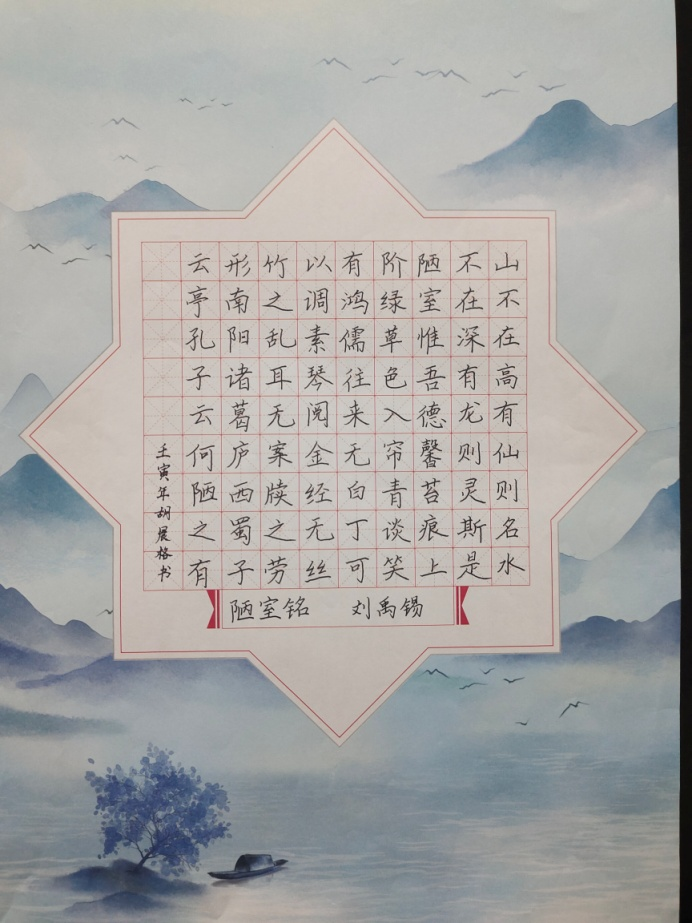 山不在高有仙则名水
不在深有龙则灵斯是
陋室惟吾德馨苔痕上
阶绿草色入帘青谈笑
有鸿儒往来无白丁可
以调素琴阅金经无丝
竹之乱耳无案牍之劳
形南阳诸葛庐西蜀子
云亭孔子云何陋之有
壬寅年胡展格书
陋室铭 刘禹锡